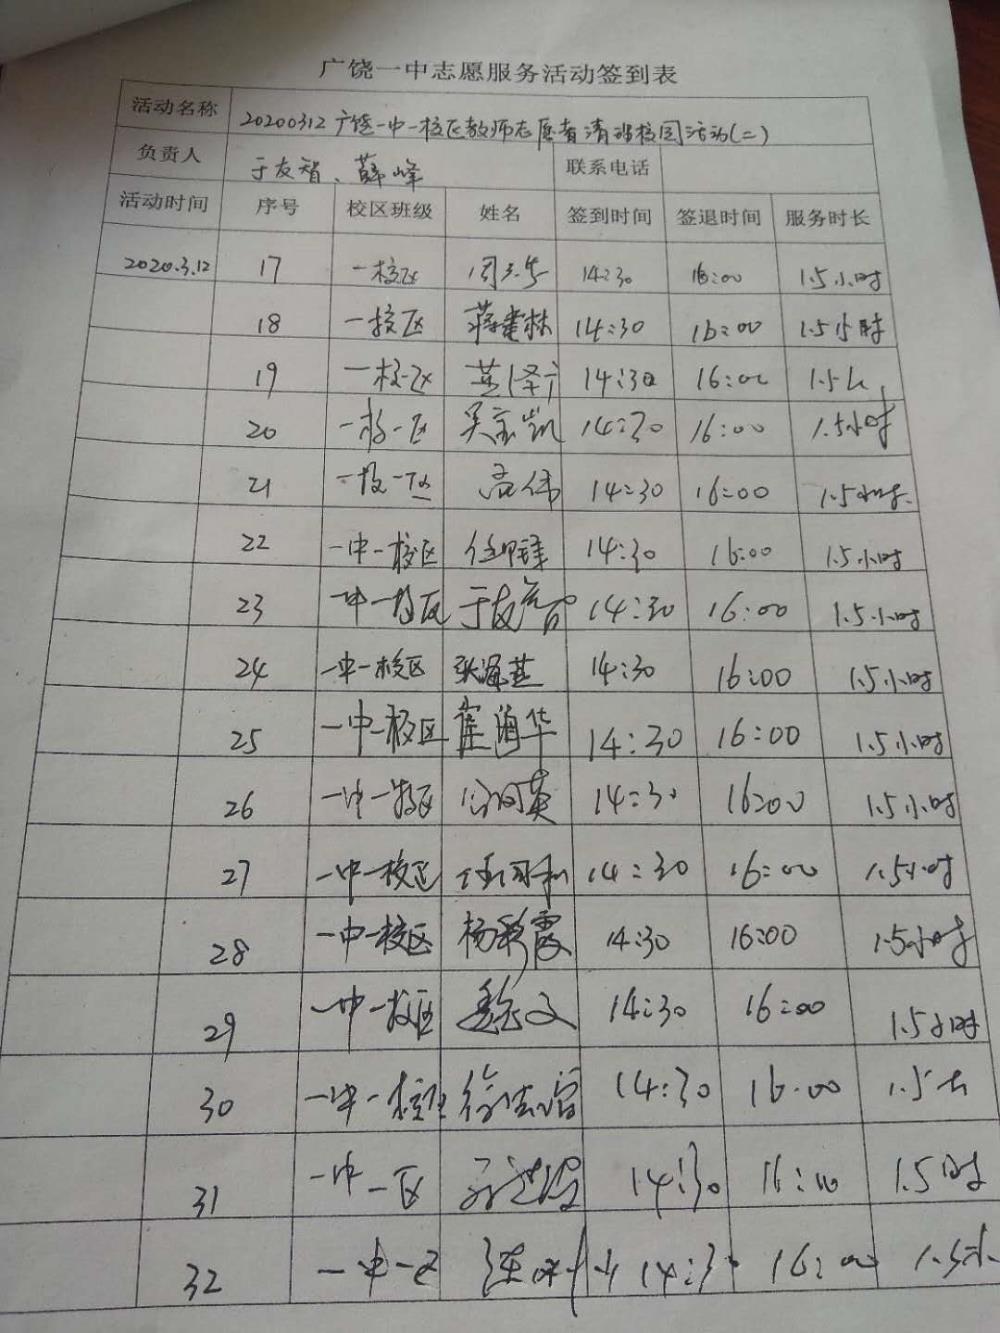 广饶一中志愿服务活动签到表
活动名称 20200312广饶一中一校区教师志愿者清理校园活动(二)
负责人 于友智、薛峰 联系电话
活动时间 序号 校区班级 姓名 签到时间 签退时间 服务时长
2020.3.12 17 一校区 14:30 16:00 1.5小时
18 一校区 蒋建林 14:30 16:00 1.5小时
19 一校区 14:30 16:00 1.5h
20 一校区 吴宝凯 14:30 16:00 1.5小时
21 一校区 高伟 14:30 16:00 1.5小时
22 一中一校区 14:30 16:00 1.5小时
23 一中一校区 于友智 14:30 16:00 1.5小时
24 一中一校区 张海燕 14:30 16:00 1.5小时
25 一中一校区 崔海华 14:30 16:00 1.5小时
26 一中一校区 14:30 16:00 1.5小时
27 一中一校区 14:30 16:00 1.5小时
28 一中一校区 杨彩霞 14:30 16:00 1.5小时
29 一中一校区 14:30 16:00 1.5小时
30 一中一校区 14:30 16:00 1.5
31 一中一区 14:30 16:00 1.5时
32 一中一区 14:30 16:00 1.5小